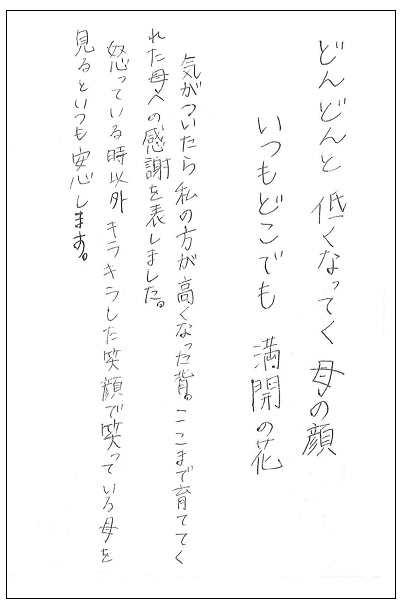 どんどんと 低くなってく 母の顔
いつもどこでも 満開の花
気がついたら私の方が高くなった背。ここまで育ててく
れた母への感謝を表しました。
怒っている時以外キラキラした笑顔で笑っている母を
見るといつも安心します。